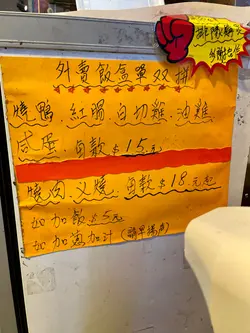 外賣飯盒單双拼
燒鴨.紅腸.白切雞.油雞
咸蛋.每款$15元
燒肉.义燒.每款$18元起
加加飯$5元
加加蔥加汁